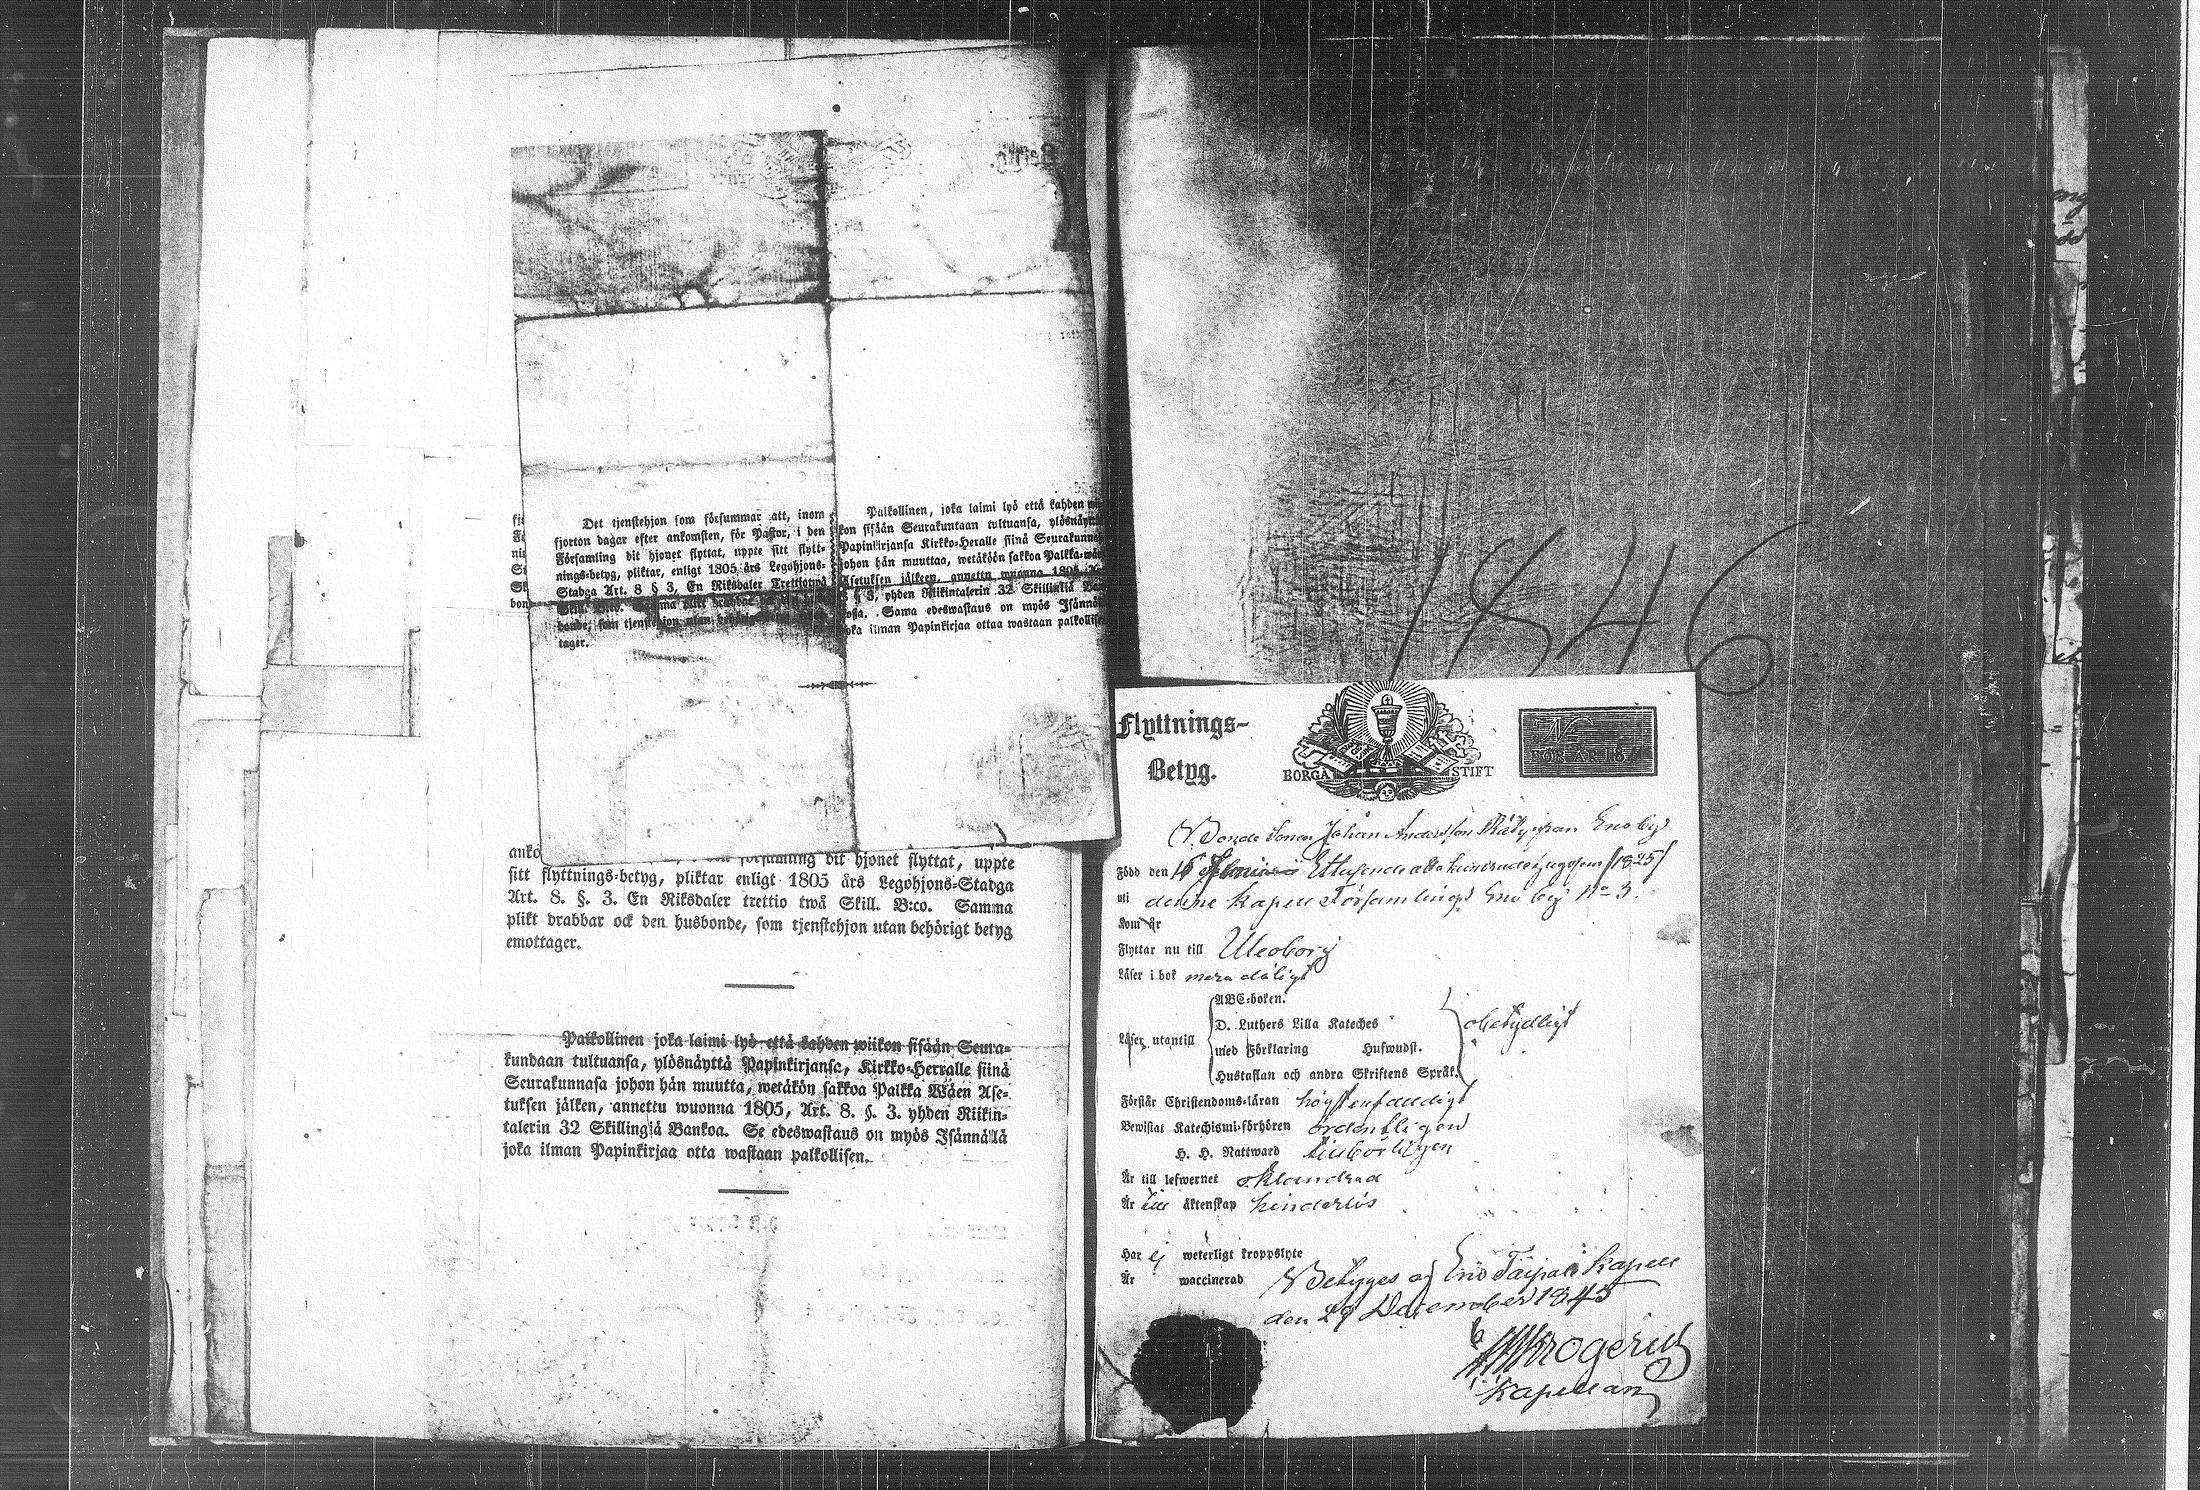 Det tjenstehjon som försummar att, inom
fjorton dagar efter ankomsten, för Pastor, i den
Församling dit hjonet flyttat, uppte sitt flytt-
nings-betyg, pliktar, enligt 1805 års Legohjons-
Stadga Art. 8 § 3, En Riksdaler Trettiotvå
Skill. B:co. Samma plikt drabbar
bonde, som tjenstehjon utan
tager.
Palkollinen, joka laimi lyö että kahden wii
kon sisään Seurakuntaan tultuansa, ylösnäyttä
Papinkirjansa Kirkko-Heralle siinä Seurakunnas
johon hän muuttaa, wetäköön sakkoa Palkka-wäe
Asetuksen jälkeen, annettu wuonna 1805 A
8 § 3, yhden Riikintalerin 32 Skillinkiä Ban
kossa. Sama edeswastaus on myös Isännällä
joka ilman Papinkirjaa ottaa wastaan palkollise
anko församling dit hjonet flyttat, uppte
sitt flyttnings-betyg, pliktar enligt 1805 års Legohjons-Stadga
Art. 8. §. 3. En Riksdaler trettio twå Skill. B:co. Samma
plikt drabbar ock den husbonde, som tjenstehjon utan behörigt betyg
emottager.
Palkollinen joka laimi lyö että kahden wiikon sisään Seura-
kundaan tultuansa, ylösnäyttä Papinkirjansa, Kirkko-Herralle siinä
Seurakunnasa johon hän muutta, wetäkön sakkoa Palkka Wäen Ase-
tuksen jälken, annettu wuonna 1805, Art. 8. §. 3. yhden Riikin-
talerin 32 Skillingiä Bankoa. Se edeswastaus on myös Isännällä
joka ilman Papinkirjaa otta wastaan palkollisen.
1846
Flyttnings-
Betyg.
BORGÅ STIFT
FÖR ÅR 18
Bonde Sonen Johan Andersson Räty ifrån Eno by
Född den 15 Ettusende åttahundrade tjugofem /1825/
uti denne Kapell Församlings Eno by No 3.
Kom år
Flyttar nu till Uleoborg
Läser i bok mera dåligt
Läser utantill
ABC-boken.
D. Luthers Lilla Kateches
med Förklaring Hufwudst.
Hustaflan och andra Skriftens Språk.
obetydligt
Förstår Christendoms-läran högst enfaldigt
Bewistat Katechismi-förhören ordentligen
H. H. Nattward tillbörligen
Är till lefwernet oklandrad
Är till äktenskap hinderlös
Har ej weterligt kroppslyte
Är waccinerad
Betyges af Eno Taipale Kapell
den 29 December 1845
Krogerus
Kapellan